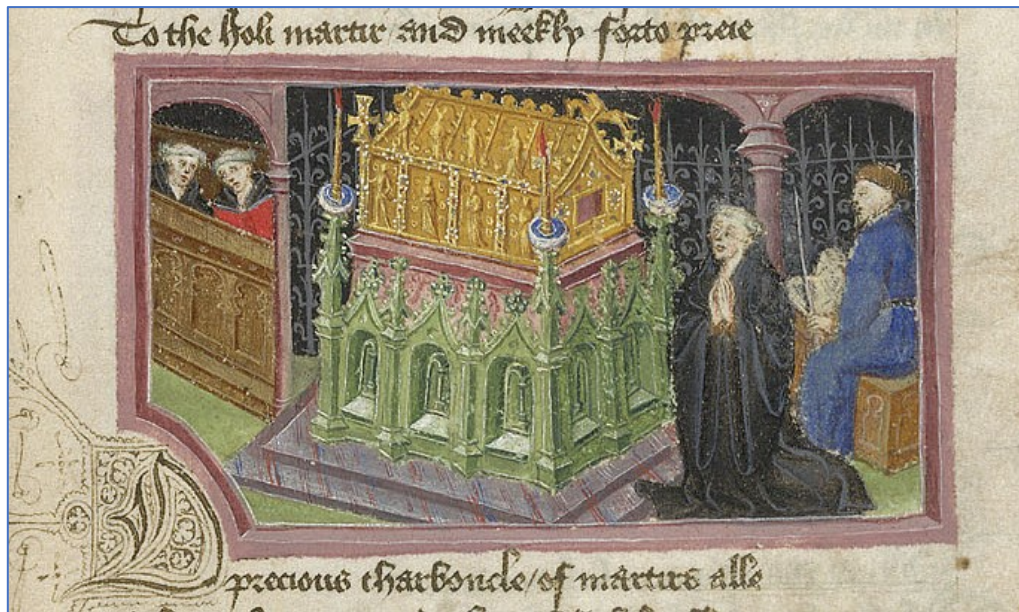 To the holi martir and meekly forto preie
O precious charboncle/of martirs alle